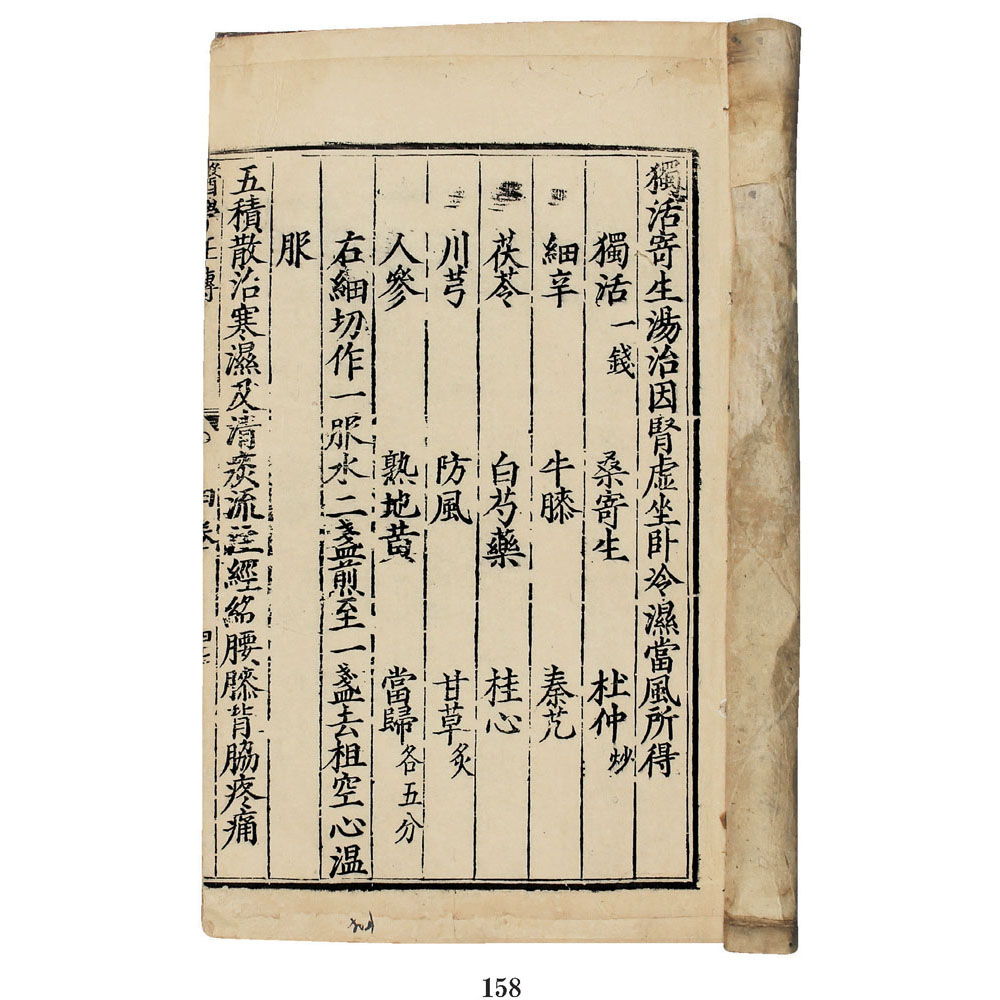 獨活寄生湯治因腎虛坐卧冷濕當風所得
獨活一錢 桑寄生 杜仲炒
細辛 牛膝 秦艽
茯苓 白芍藥 桂心
川芎 防風 甘草炙
人參 熟地黃 當歸各五分
右細切作一服水二盞煎至一盞去柤空心温
服
五積散治寒濕及清痰流注經絡腰膝背脇疼痛
醫學正傳 四卷
158